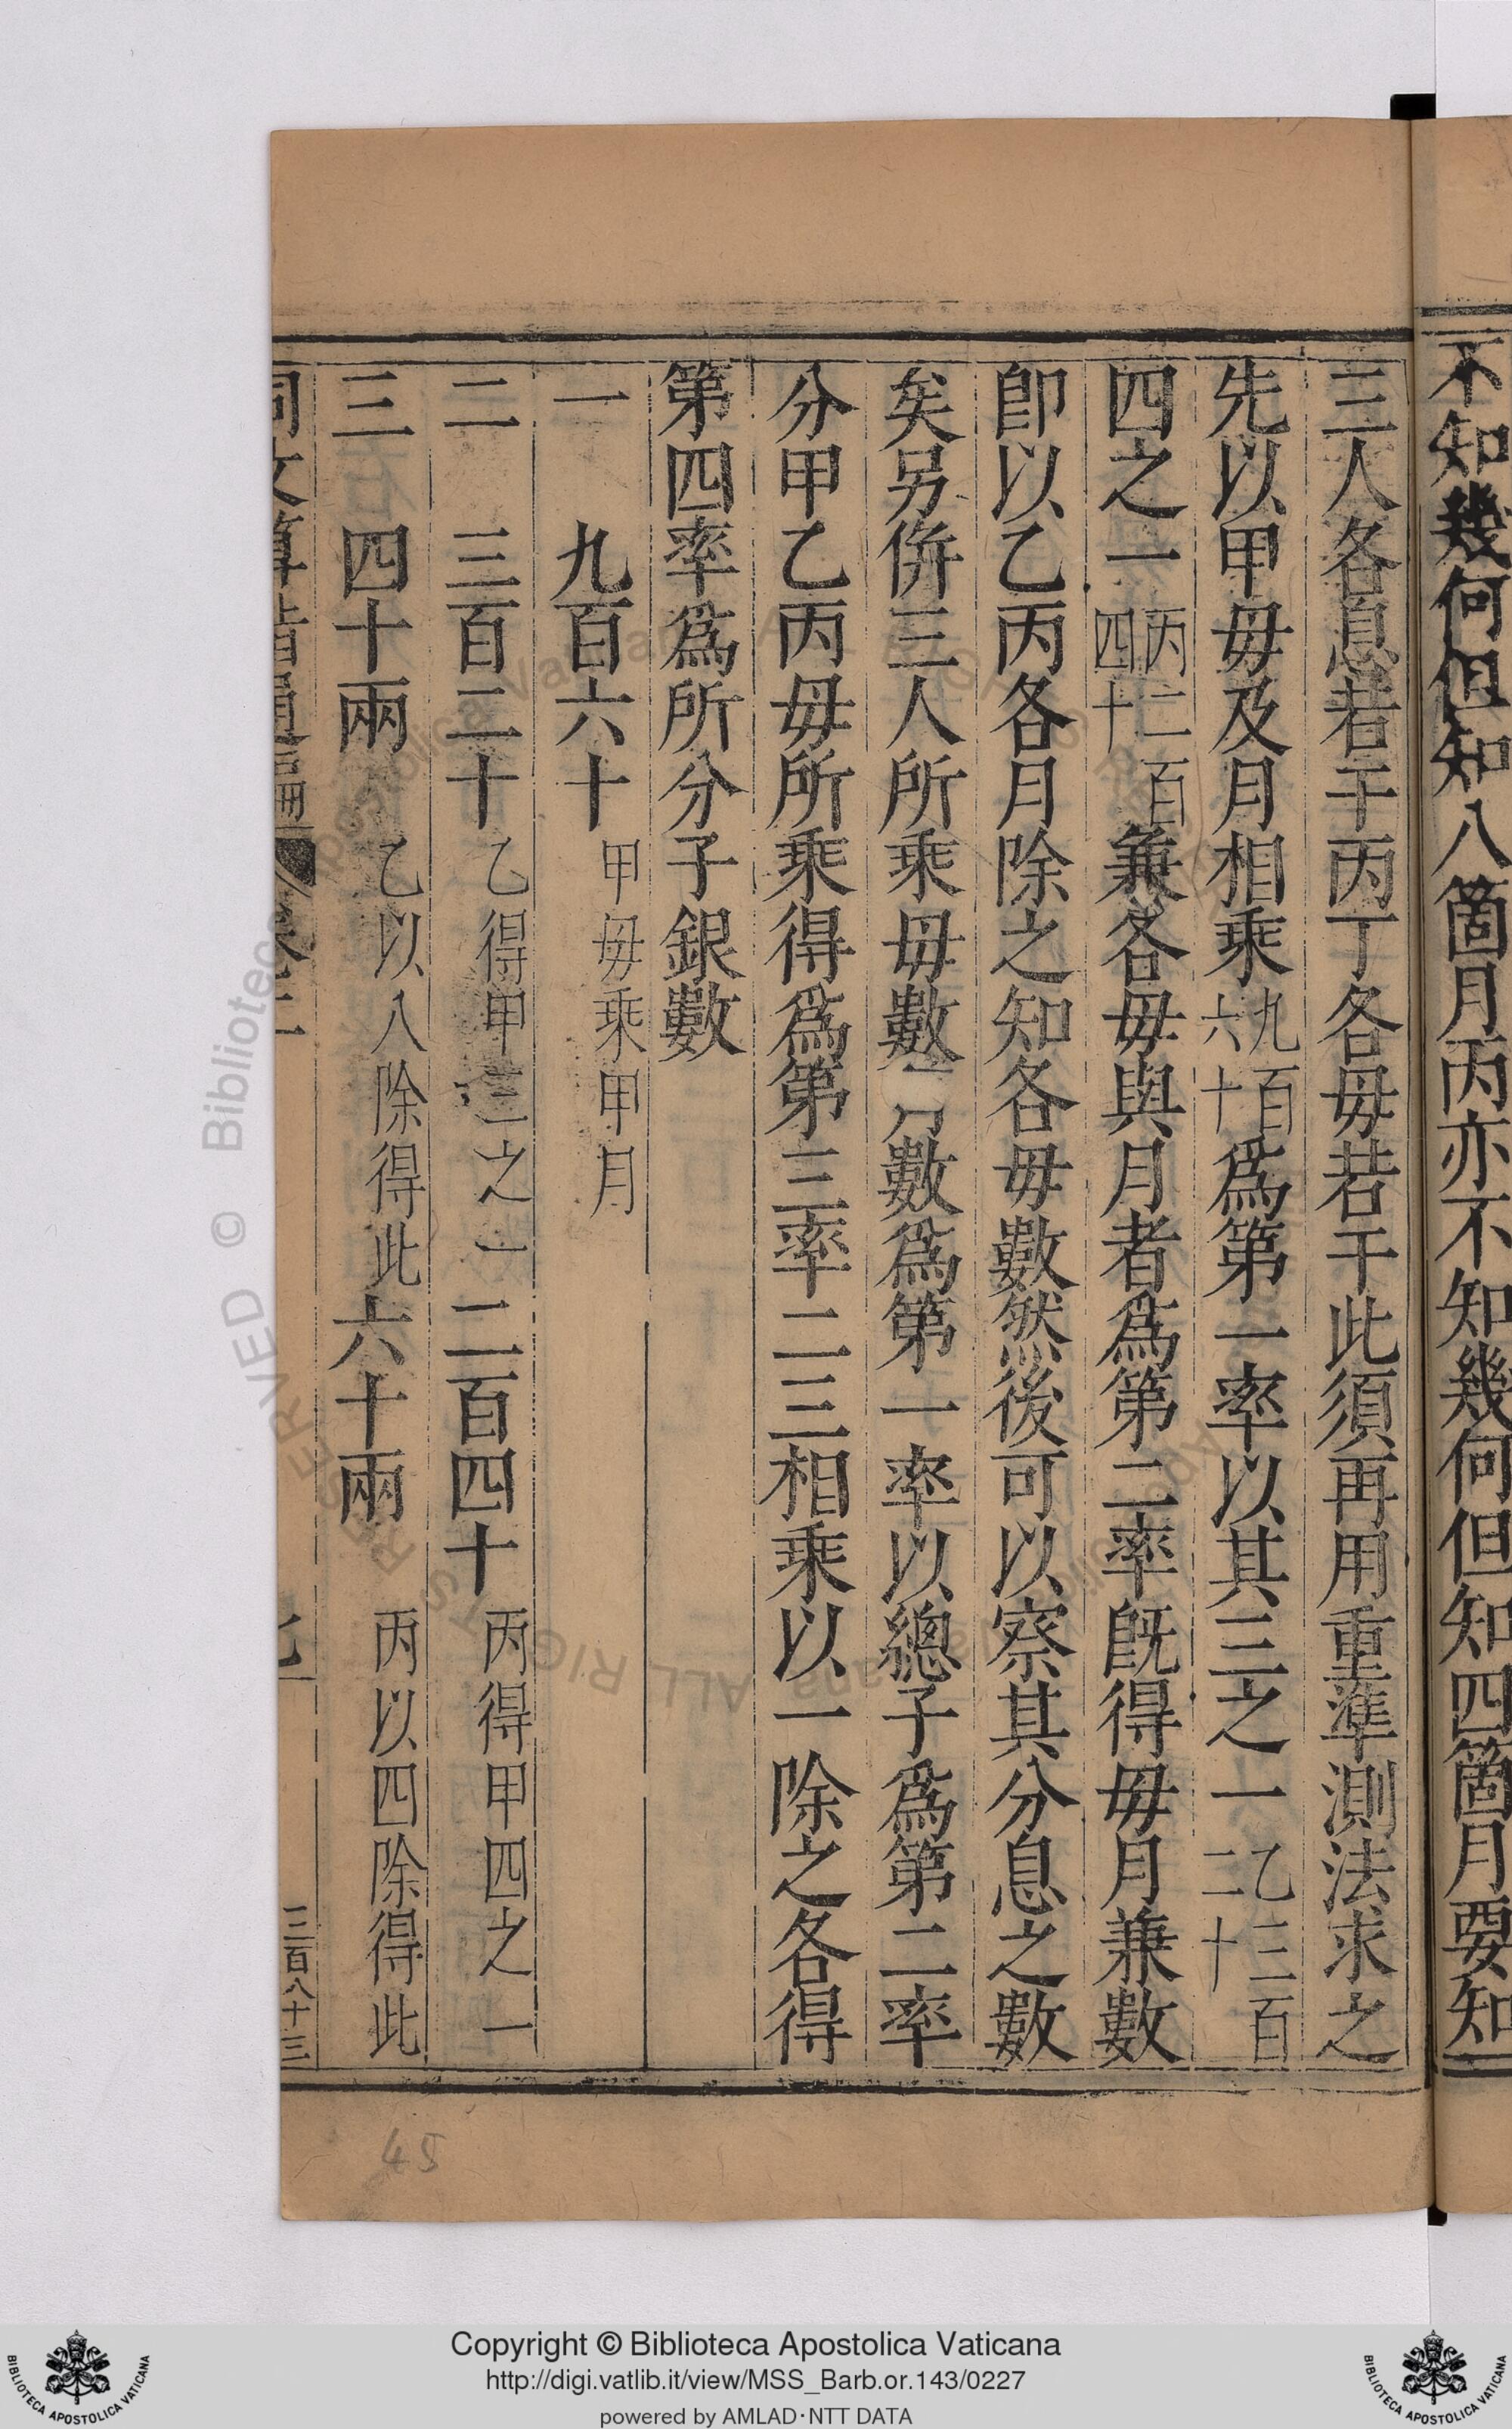 不知幾何但知八箇月丙亦不知幾何但知四箇月要知
三人各息若干丙丁各毋若干此須再用重準測法求之
先以甲毋及月相乘九百六十爲第一率以其三之一乙三百二十
四之一丙二百四十兼各毋與月者爲第二率旣得毋月兼數
卽以乙丙各月除之知各毋數然後可以察其分息之數
矣另併三人所乘毋數數爲第一率以總子爲第二率
分甲乙丙毋所乘得爲第三率二三相乘以一除之各得
第四率爲所分子銀數
一　九百六十　甲毋乘甲月
二　三百二十　乙得甲三之一　二百四十　丙得甲四之一
三　四十兩　乙以八除得此　六十兩　丙以四除得此
同文算指通編　卷二　三百八十三
45
Copyright © Biblioteca Apostolica Vaticana
http://digi.vatlib.it/view/MSS_Barb.or.143/0227
powered by AMLAD·NTT DATA
BIBLIOTECA APOSTOLICA VATICANA
BIBLIOTECA APOSTOLICA VATICANA